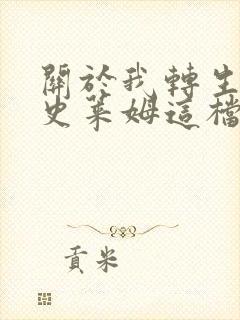 關於我轉生
史萊姆這檔
貢米